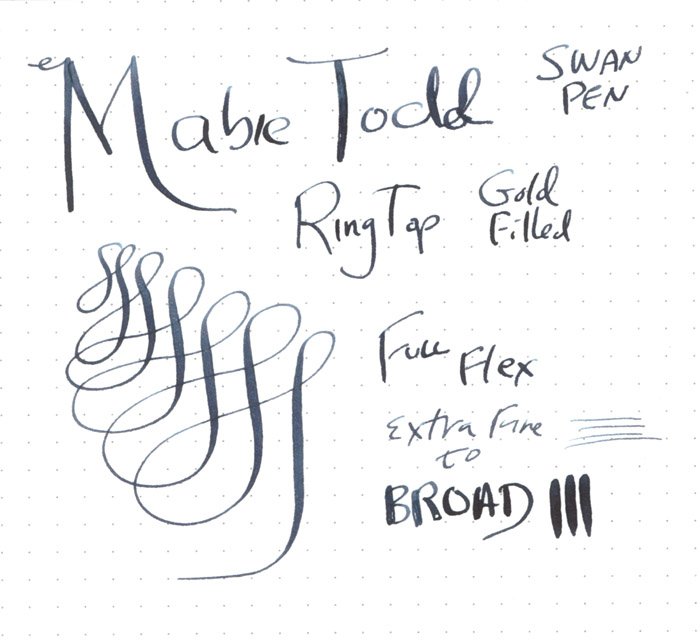 Mabie Todd
SWAN
PEN
RingTop
Gold
Filled
Full Flex
Extra Fine
to
BROAD